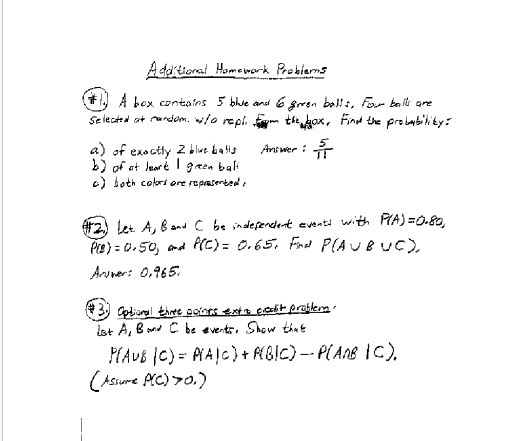 Additional Homework Problems
#1. A box contains 5 blue and 6 green balls. Four balls are
selected at random w/o repl. from the box. Find the probability:
a) of exactly 2 blue balls Answer: 5/11
b) of at least 1 green ball
c) both colors are represented.
#2. Let A, B and C be independent events with P(A)=0.80,
P(B)=0.50, and P(C)=0.65. Find P(A∪B∪C).
Answer: 0.965.
#3. Optional three points extra credit problem.
Let A, B and C be events. Show that
P(A∪B|C)=P(A|C)+P(B|C)-P(A∩B|C).
(Assume P(C)>0.)